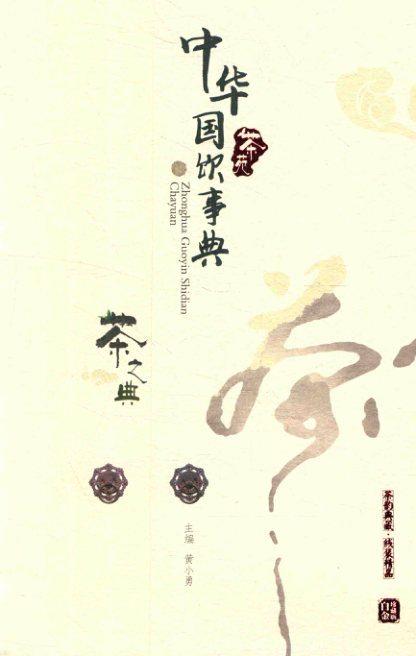 中华国饮事典
茶苑
Zhonghua Guoyin Shidian
Chayuan
茶之典
茶
主编 黄小勇
茶韵典藏·线装精品
白金
珍藏版